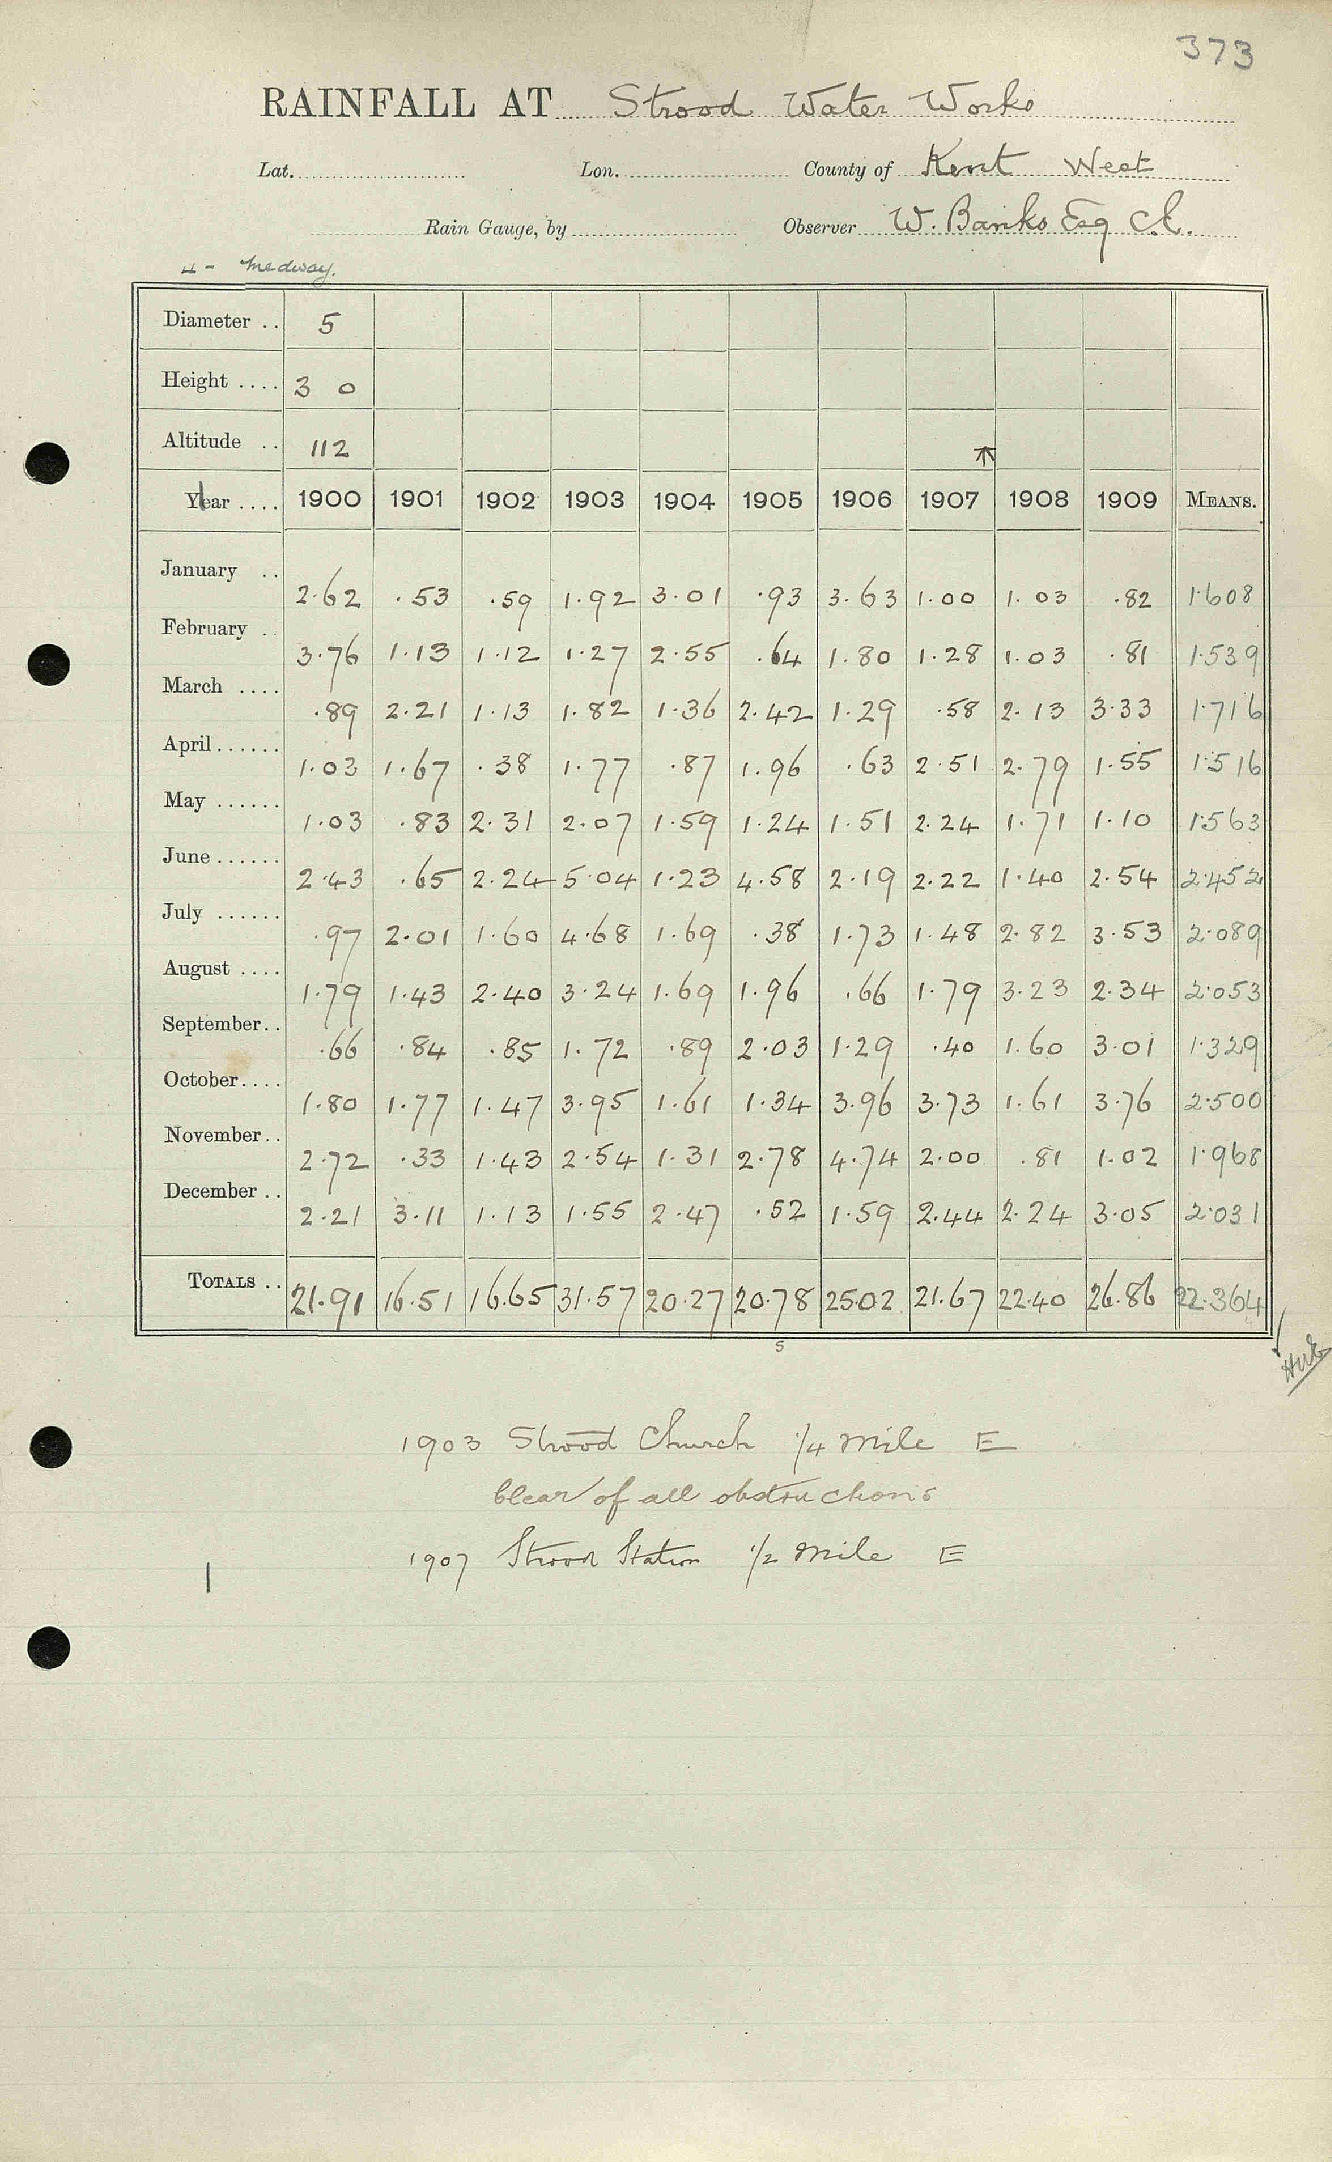 373
RAINFALL AT Strood Water Works
Lat. Lon. County of Kent West
Rain Gauge, by Observer W. Banks Esq C.E.
4 - Medway.
Diameter .. 5
Height .... 3 0
Altitude .. 112
Year .... 1900 1901 1902 1903 1904 1905 1906 1907 1908 1909 MEANS.
January .. 2.62 .53 .59 1.92 3.01 .93 3.63 1.00 1.03 .82 1.608
February . 3.76 1.13 1.12 1.27 2.55 .64 1.80 1.28 1.03 .81 1.539
March .... .89 2.21 1.13 1.82 1.36 2.42 1.29 .58 2.13 3.33 1.716
April...... 1.03 1.67 .38 1.77 .87 1.96 .63 2.51 2.79 1.55 1.516
May ...... 1.03 .83 2.31 2.07 1.59 1.24 1.51 2.24 1.71 1.10 1.563
June ...... 2.43 .65 2.24 5.04 1.23 4.58 2.19 2.22 1.40 2.54 2.452
July ...... .97 2.01 1.60 4.68 1.69 .38 1.73 1.48 2.82 3.53 2.089
August .... 1.79 1.43 2.40 3.24 1.69 1.96 .66 1.79 3.23 2.34 2.053
September.. .66 .84 .85 1.72 .89 2.03 1.29 .40 1.60 3.01 1.329
October.... 1.80 1.77 1.47 3.95 1.61 1.34 3.96 3.73 1.61 3.76 2.500
November.. 2.72 .33 1.43 2.54 1.31 2.78 4.74 2.00 .81 1.02 1.968
December .. 2.21 3.11 1.13 1.55 2.47 .52 1.59 2.44 2.24 3.05 2.031
TOTALS .. 21.91 16.51 16.65 31.57 20.27 20.78 25.02 21.67 22.40 26.86 22.364
s
1903 Strood Church 1/4 mile E
Clear of all obstructions
1907 Strood Station 1/2 mile E